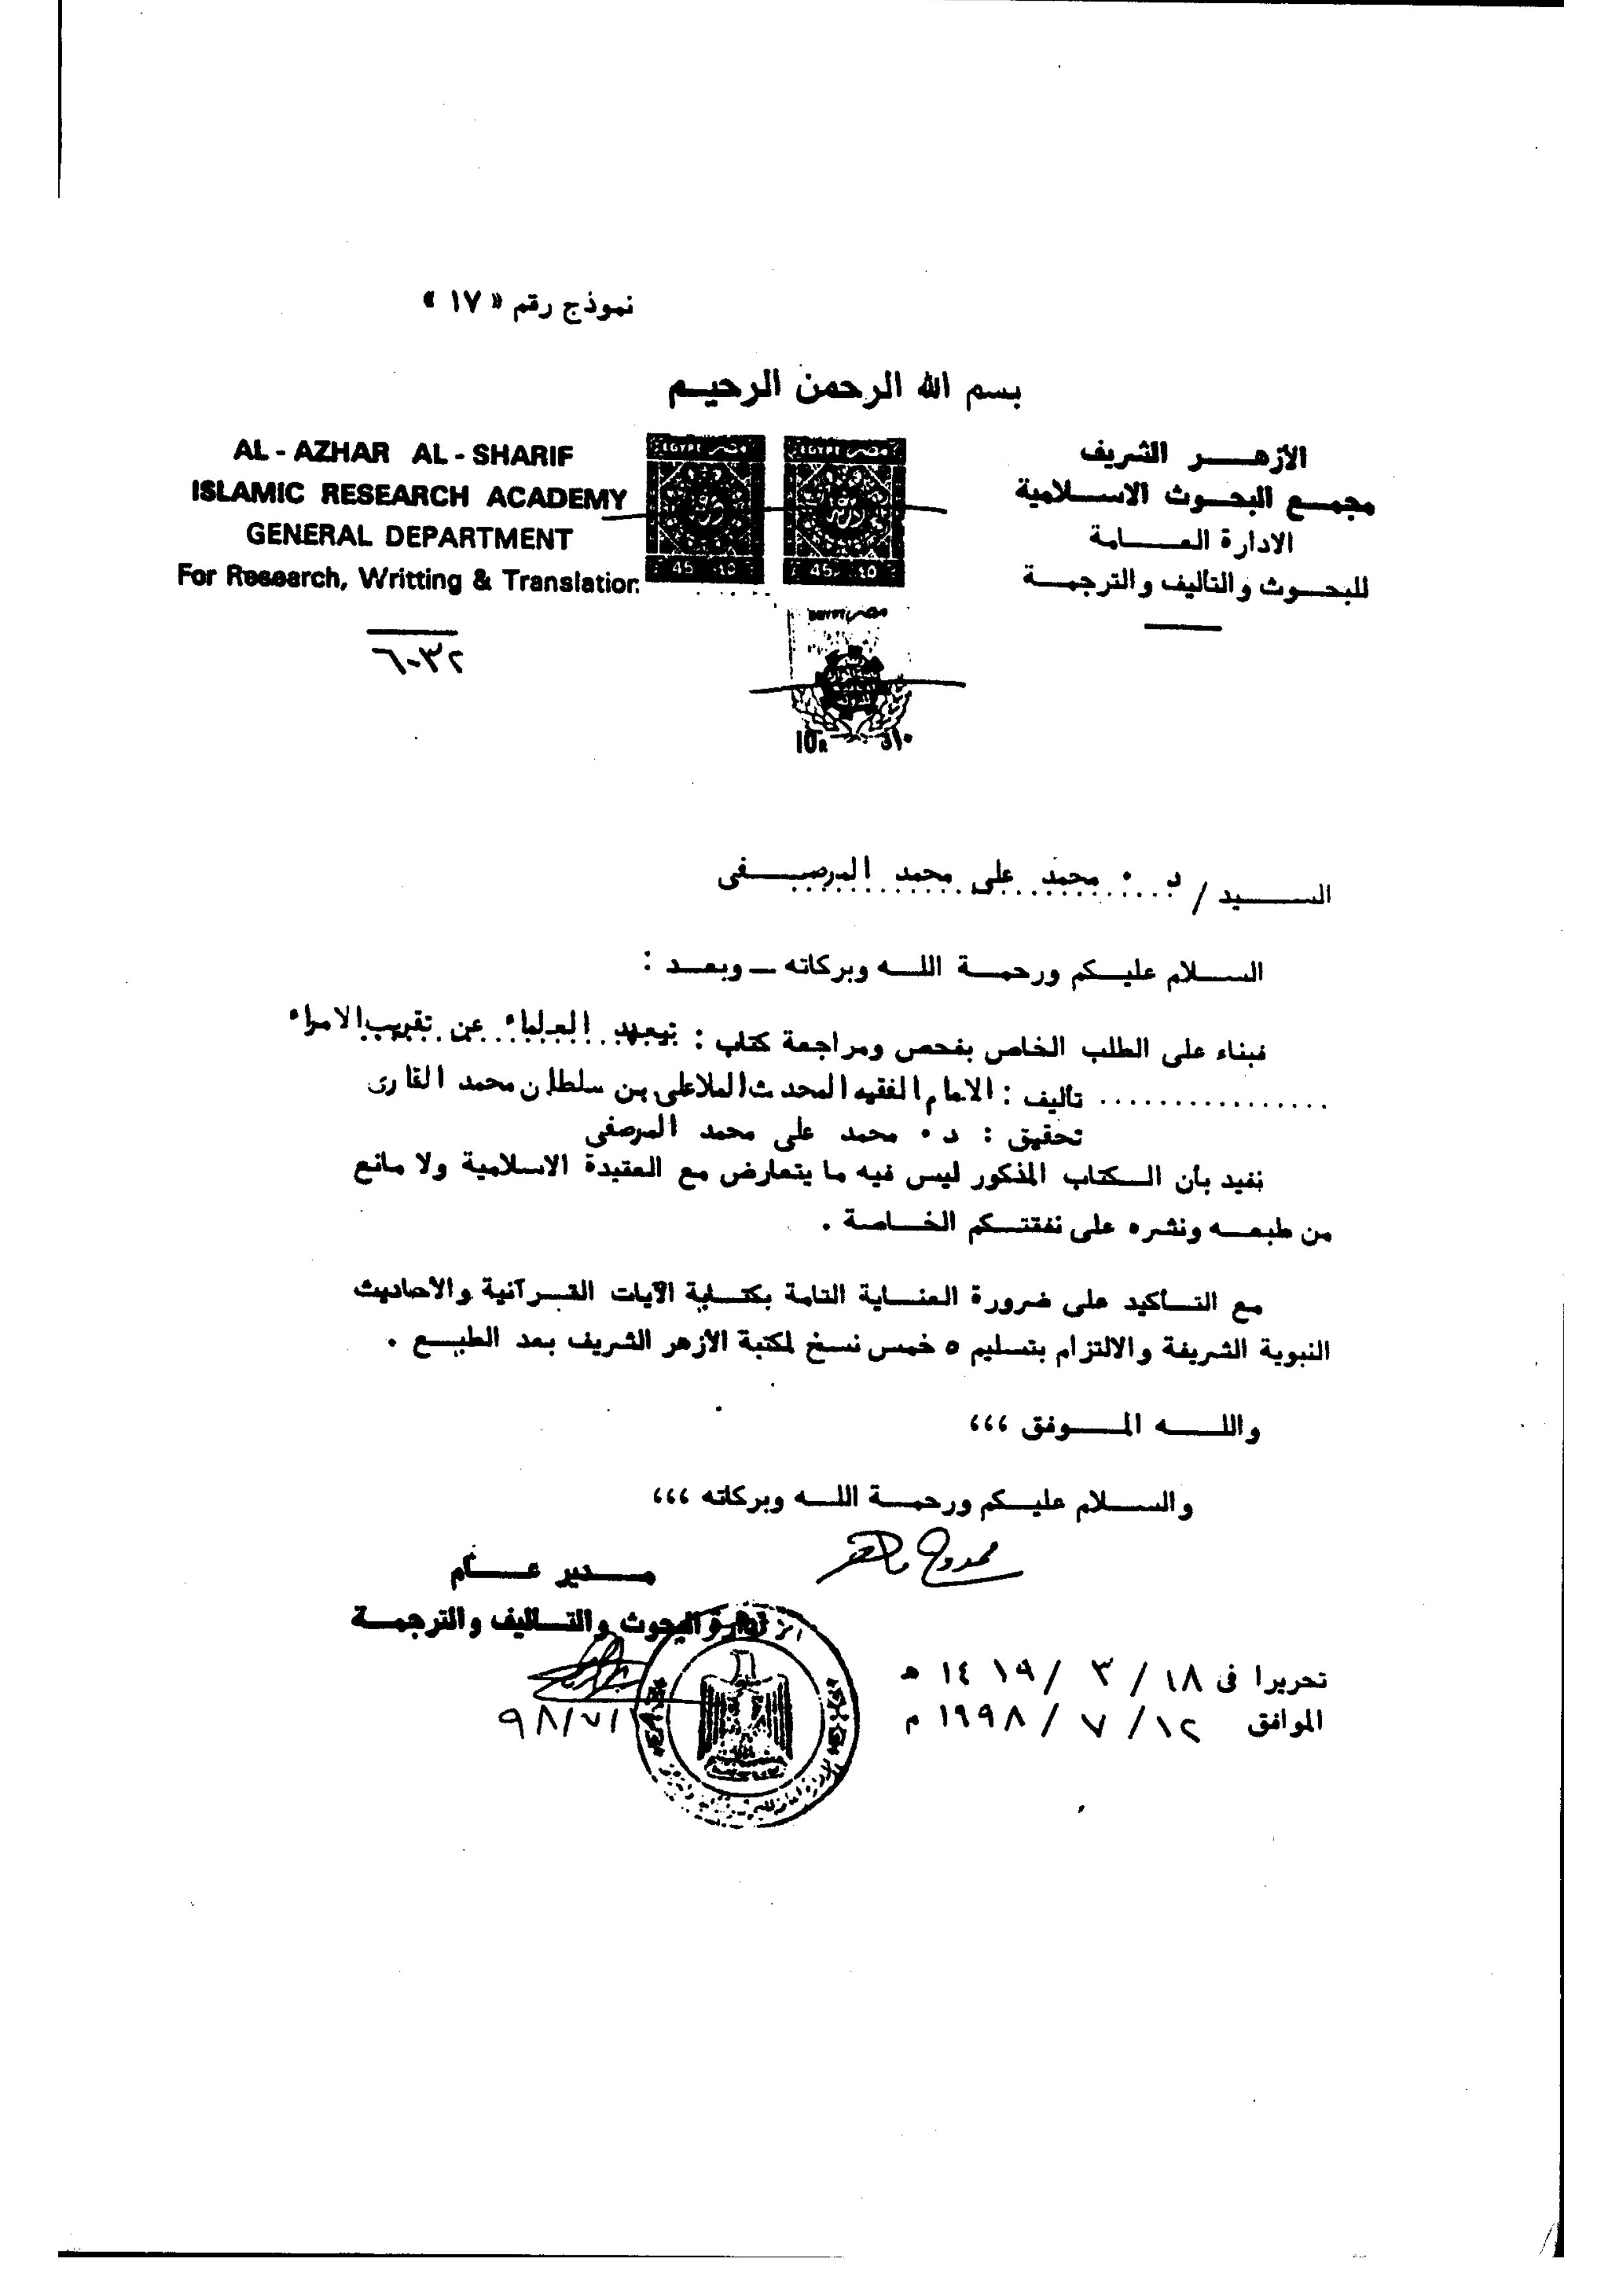 نموذج رقم « ١٧ »
بسم الله الرحمن الرحيم
الأزهر الشريف
مجمع البحوث الاسلامية
الادارة العامة
للبحوث والتأليف والترجمة
AL - AZHAR AL - SHARIF
ISLAMIC RESEARCH ACADEMY
GENERAL DEPARTMENT
For Research, Writting & Translation
مصر EGYPT
مصر EGYPT
45
45
مصر EGYPT
السيد / د ٠ محمد على محمد المرصفى
السلام عليكم ورحمة الله وبركاته – وبعد :
فبناء على الطلب الخاص بفحص ومراجعة كتاب : تبعيد العلماء عن تقريب الامراء
تأليف : الامام الفقيه المحدث الملا على بن سلطان محمد القارى
تحقيق : د ٠ محمد على محمد المرصفى
نفيد بأن الكتاب المذكور ليس فيه ما يتعارض مع العقيدة الاسلامية ولا مانع
من طبعه ونشره على نفقتكم الخاصة .
مع التأكيد على ضرورة العناية التامة بكتابة الآيات القرآنية والأحاديث
النبوية الشريفة والالتزام بتسليم ٥ خمس نسخ لمكتبة الأزهر الشريف بعد الطبع .
والله الموفق ،،،
والسلام عليكم ورحمة الله وبركاته ،،،
مدير عام
ادارة البحوث والتأليف والترجمة
تحريرا فى ١٨ / ٣ / ١٤١٩ هـ
الموافق ١٢ / ٧ / ١٩٩٨ م